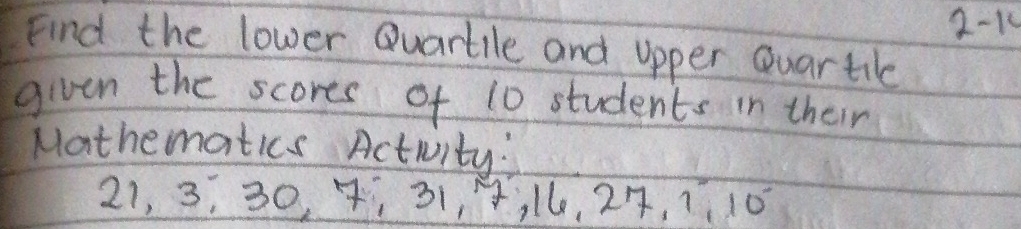 2-1
Find the lower Quartile and Upper Quartile
given the scores of 10 students in their
Mathematics Activity:
21, 3, 30, 7, 31, 7, 16, 27, 1, 10